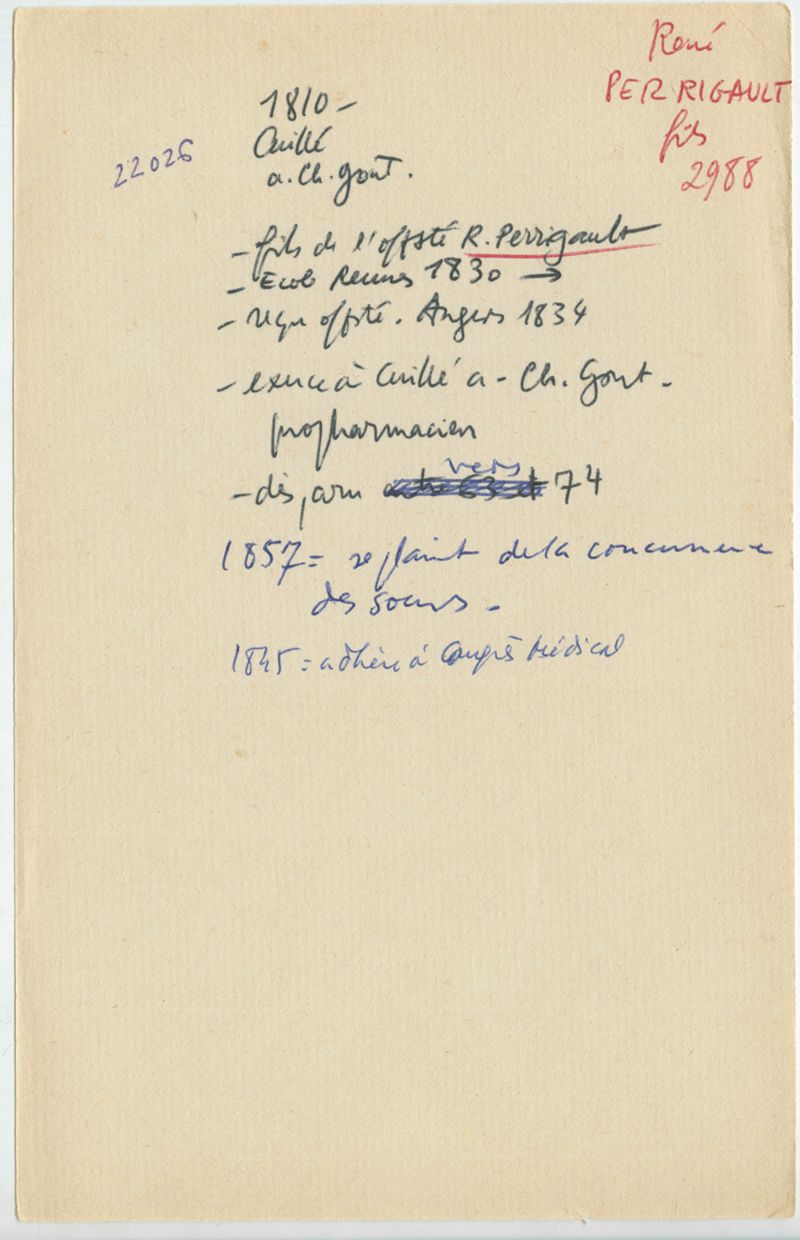 René
PERRIGAULT
fils
2988
1810 –
22026
Cuillé
a. Ch. Gont.
– fils de l'offsté R. Perrigault
– Ecole Rennes 1830 →
– reçu offsté. Angers 1834
– exerce à Cuillé a – Ch. Gont.
propharmacien
vers
– disparu entre 63 et 74
1857 = se plaint de la concurrence
des soeurs –
1845 = adhère à Congrès Médical